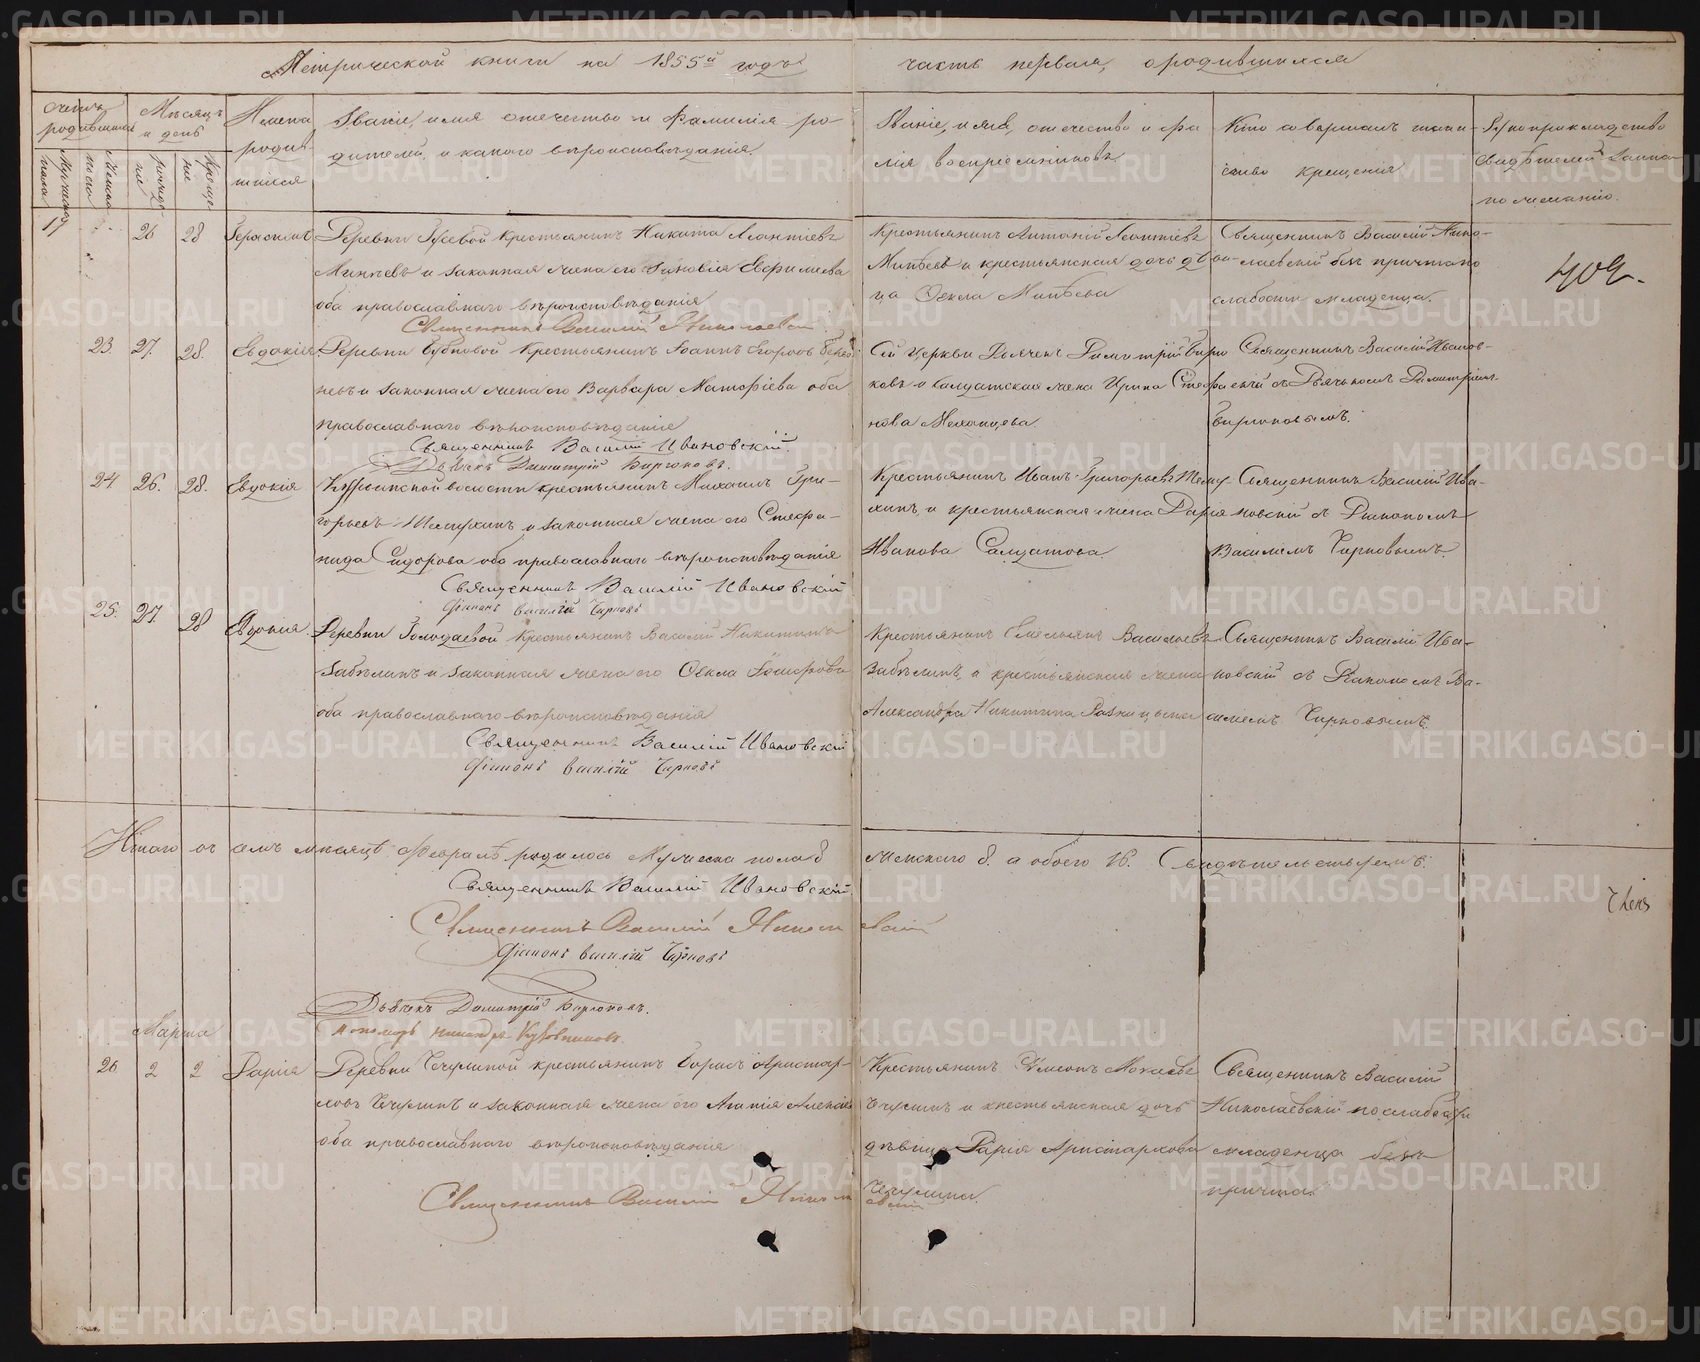 Метрической книги на 1855й годъ
часть первая, о родившихся
Счетъ родившихся
Мѣсяцъ и день
Имена родившихся
Званіе, имя отечество и фамилія родителей, и какого вѣроисповѣданія.
Званіе, имя, отечество и фамилія воспріемниковъ
Кто совершалъ таинство крещенія
Рукоприкладство свидѣтелей записи по желанію.
мужеска пола
женска пола
рожденіе
крещеніе
17 26 28 Герасимъ
Деревни Гусевой крестьянинъ Никита Леонтіевъ
Минѣевъ и законная жена его Зиновія Ефимиева
оба православнаго вѣроисповѣданія
Священникъ Василій Николаевскій
Крестьянинъ Антоній Леонтіевъ
Минѣевъ и крестьянская дочь дѣви-
ца Ѳекла Минѣева
Священникъ Василій Нико-
лаевскій безъ причта по
слабости младенца.
23. 27. 28. Евдокія
Деревни Бубновой крестьянинъ Іоаннъ Егоровъ
и законная жена его Варвара Матфіева оба
православнаго вѣроисповѣданія
Священникъ Василій Ивановскій.
Дьячекъ Димитрій Бирюковъ.
Сей церкви Дьячекъ Димитрій Бирю-
ковъ и солдатская жена Ирина Стефа-
нова
Священникъ Василій Иванов-
скій съ Дьячкомъ Димитріемъ
Бирюковымъ.
24 26. 28. Евдокія
волости крестьянинъ Михаилъ Гри-
горьевъ и законная жена его Стефа-
нида Сидорова оба православнаго вѣроисповѣданія
Священникъ Василій Ивановскій
Діаконъ Василій Чирковъ
Крестьянинъ Иванъ Григорьевъ
и крестьянская жена Дарія
Иванова Салдатова
Священникъ Василій Ива-
новскій съ Діакономъ
Василіемъ Чирковымъ.
25. 27. 28 Евдокія
Деревни Голодаевой крестьянинъ Василій Никитинъ
Забѣлинъ и законная жена его Ѳекла
оба православнаго вѣроисповѣданія
Священникъ Василій Ивановскій
Діаконъ Василій Чирковъ
Крестьянинъ Емельянъ Васильевъ
Забѣлинъ, и крестьянская жена
Александра Никитина
Священникъ Василій Ива-
новскій съ Діакономъ Ва-
силіемъ Чирковымъ.
Итого въ семъ мѣсяцѣ Февралѣ родилось мужеска пола 8
женскаго 8. а обоего 16. Свидѣтельствуемъ:
Священникъ Василій Ивановскій
Священникъ Василій Николаевскій
Діаконъ Василій Чирковъ
Дьячекъ Димитрій Бирюковъ.
Пономарь
Марта
26 2 2 Дарія
Деревни Чечулиной крестьянинъ Борисъ Аристар-
ховъ Чечулинъ и законная жена его Агапія
оба православнаго вѣроисповѣданія
Священникъ Василій Николаевскій
Крестьянинъ Симеонъ
Чечулинъ и крестьянская дочь
дѣвица Дарія Аристархова
Чечулина
Священникъ Василій
Николаевскій по слабости
младенца безъ
причта.